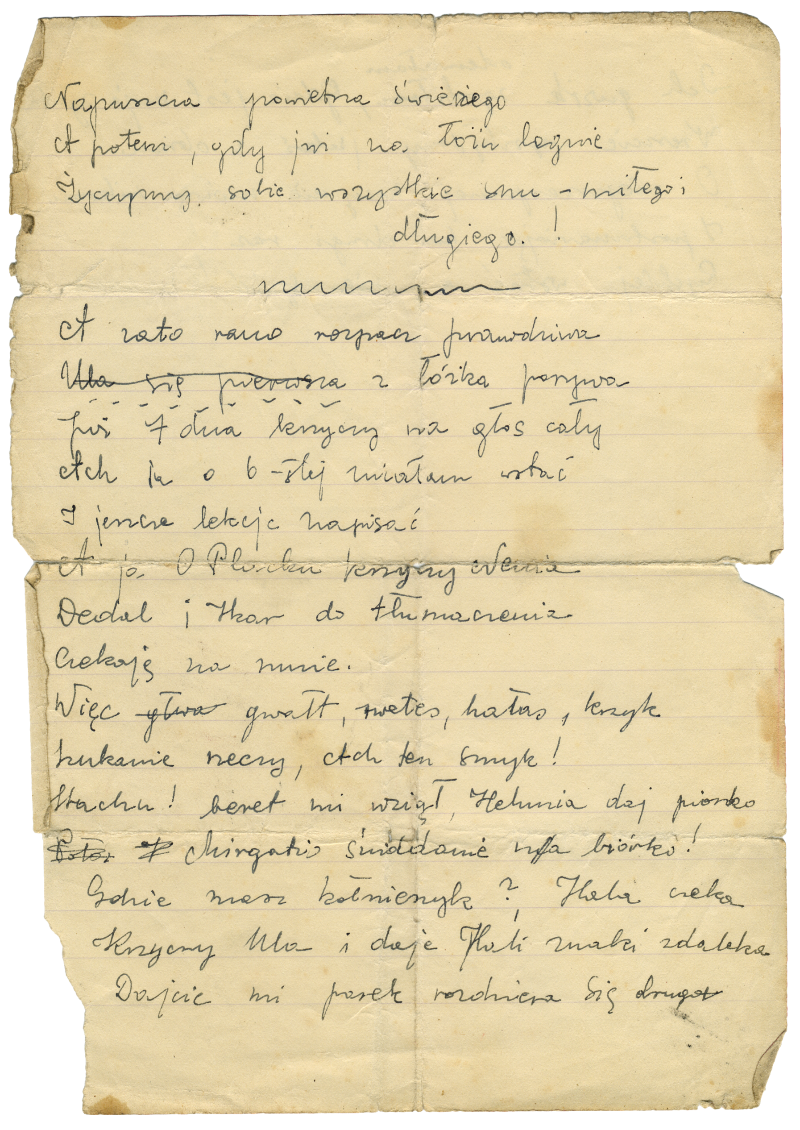 Napuszcza powietrza świeżego
A potem, gdy już na łożu legnie
Życzymy sobie wszystkie snu - miłego i
długiego.!
A zato rano rozpacz prawdziwa
Ula się pierwsza z łóżka porywa
Już 7 dma krzyczy na głos cały
Ach ja o 6-stej miałam wstać
I jeszcze lekcje napisać
A ja O Placku krzyczy Wenia
Dedal i Ikar do tłumaczenia
Czekają na mnie.
Więc gwałt, rwetes, hałas, krzyk
Szukanie rzeczy, Ach ten smyk!
Stachu! beret mi wziął, Helunia daj piórko
Margatko śniadanie na biórko!
Gdzie masz kołnierzyk? Hala czeka
Krzyczy Ula i daje Hali znaki zdaleka
Dajcie mi pasek rozdziera się druga